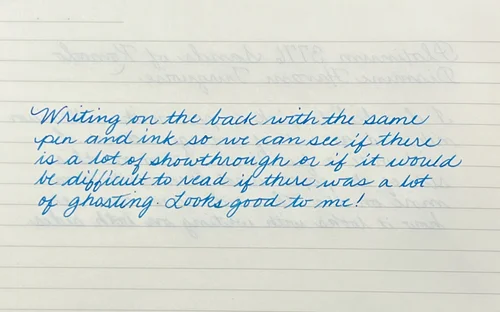 Writing on the back with the same
pen and ink so we can see if there
is a lot of showthrough or if it would
be difficult to read if there was a lot
of ghosting. Looks good to me!